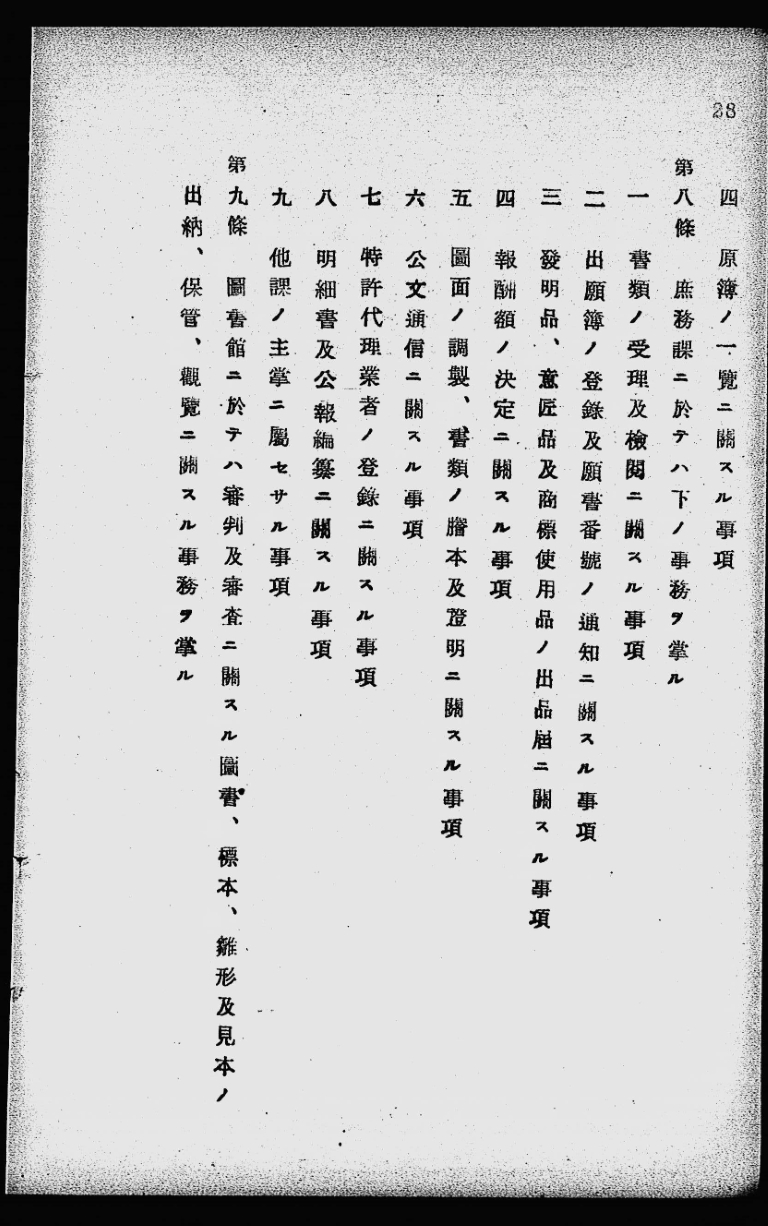 28
四　原簿ノ一覽ニ關スル事項
第八條　庶務課ニ於テハ下ノ事務ヲ掌ル
一　書類ノ受理及檢閱ニ關スル事項
二　出願簿ノ登錄及願書番號ノ通知ニ關スル事項
三　發明品、意匠品及商標使用品ノ出品屆ニ關スル事項
四　報酬額ノ決定ニ關スル事項
五　圖面ノ調製、書類ノ謄本及證明ニ關スル事項
六　公文通信ニ關スル事項
七　特許代理業者ノ登錄ニ關スル事項
八　明細書及公報編纂ニ關スル事項
九　他課ノ主掌ニ屬セサル事項
第九條　圖書館ニ於テハ審判及審査ニ關スル圖書、標本、雛形及見本ノ
出納、保管、觀覽ニ關スル事務ヲ掌ル